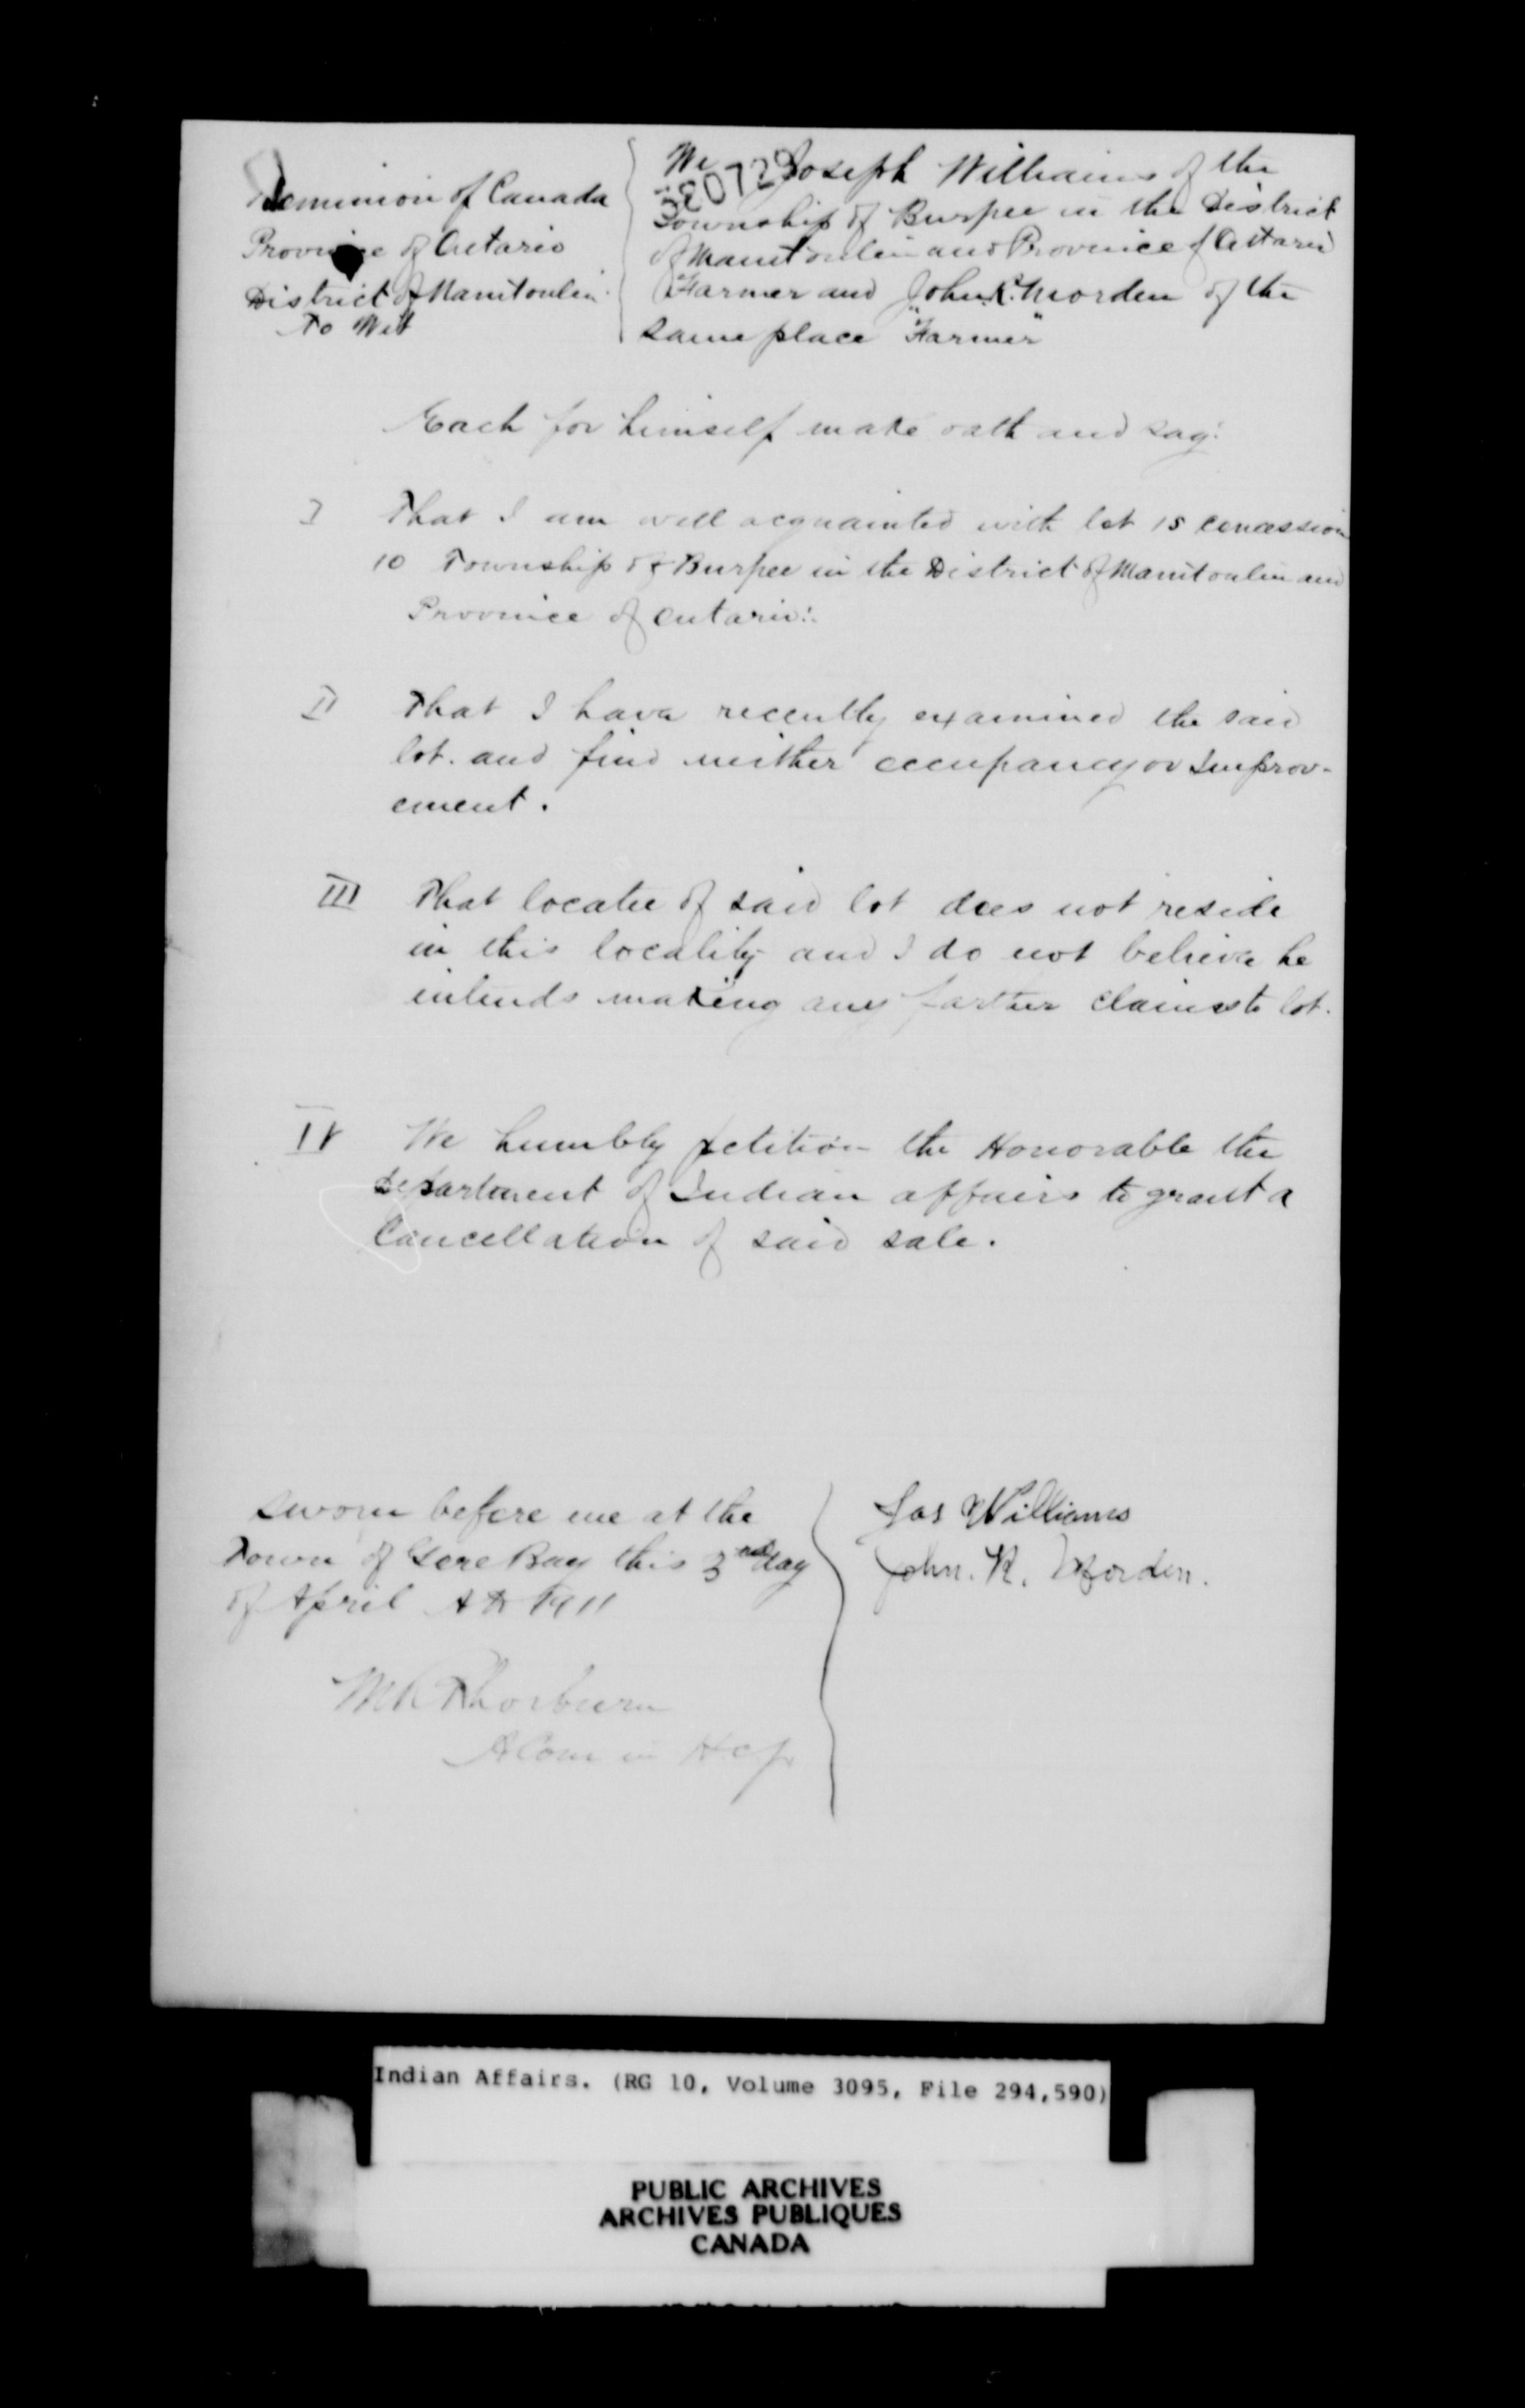 Dominion of Canada
Province of Ontario
District of Manitoulin
To Wit
We Joseph Williams of the
Township of Burpee in the District
of Manitoulin and Province of Ontario
"Farmer and John R. Morden of the
same place "Farmer"
Each for himself make oath and say:
I That I am well acquainted with lot 15 concession
10 Township of Burpee in the District of Manitoulin and
Province of Ontario:
II That I have recently examined the said
lot. and find neither occupancy or Improv-
ement.
III That locatee of said lot does not reside
in this locality and I do not believe he
intends making any farther claims to lot.
IV We humbly petition the Honorable the
Department of Indian affairs to grant a
Cancellation of said sale.
Sworn before me at the
Town of Gore Bay this 3rd day
of April AD 1911
Jos Williams
John. R. Morden.
Thorburn
A Com in HCJ
Indian Affairs. (RG 10, Volume 3095, File 294,590)
PUBLIC ARCHIVES
ARCHIVES PUBLIQUES
CANADA